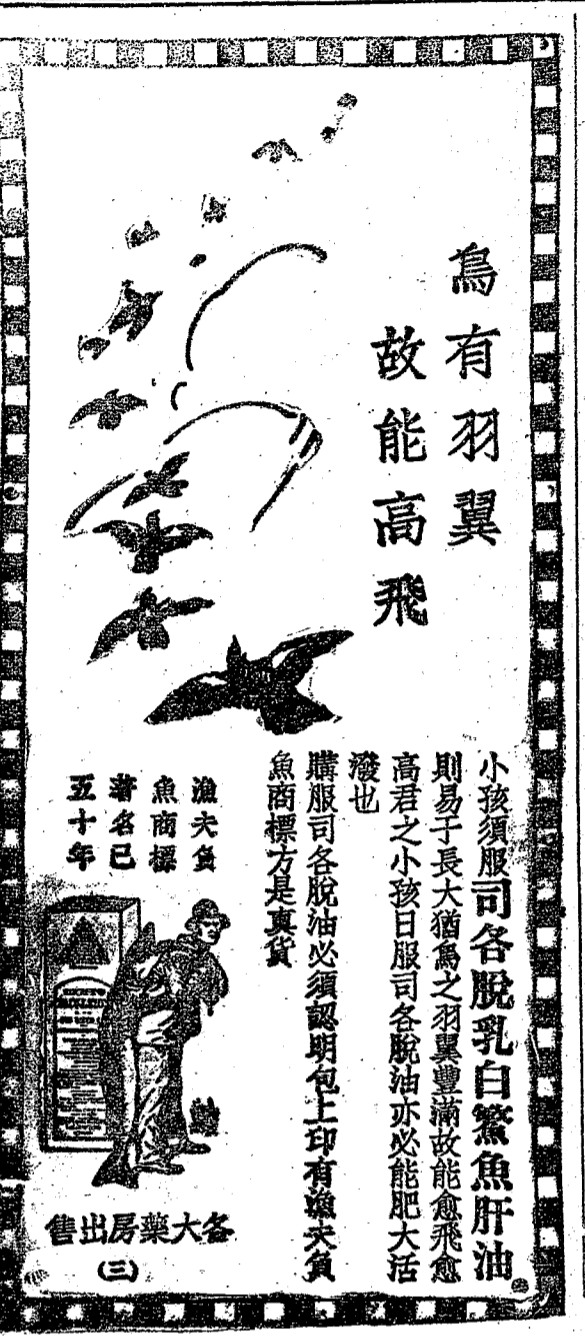 鳥有羽翼
故能高飛
小孩須服司各脫乳白鰵魚肝油
則易于長大猶鳥之羽翼豐滿故能愈飛愈
高君之小孩日服司各脫油亦必能肥大活
潑也
購服司各脫油必須認明包上印有漁夫負
魚商標方是真貨
漁夫負
魚商標
著名已
五十年
各大藥房出售
(三)